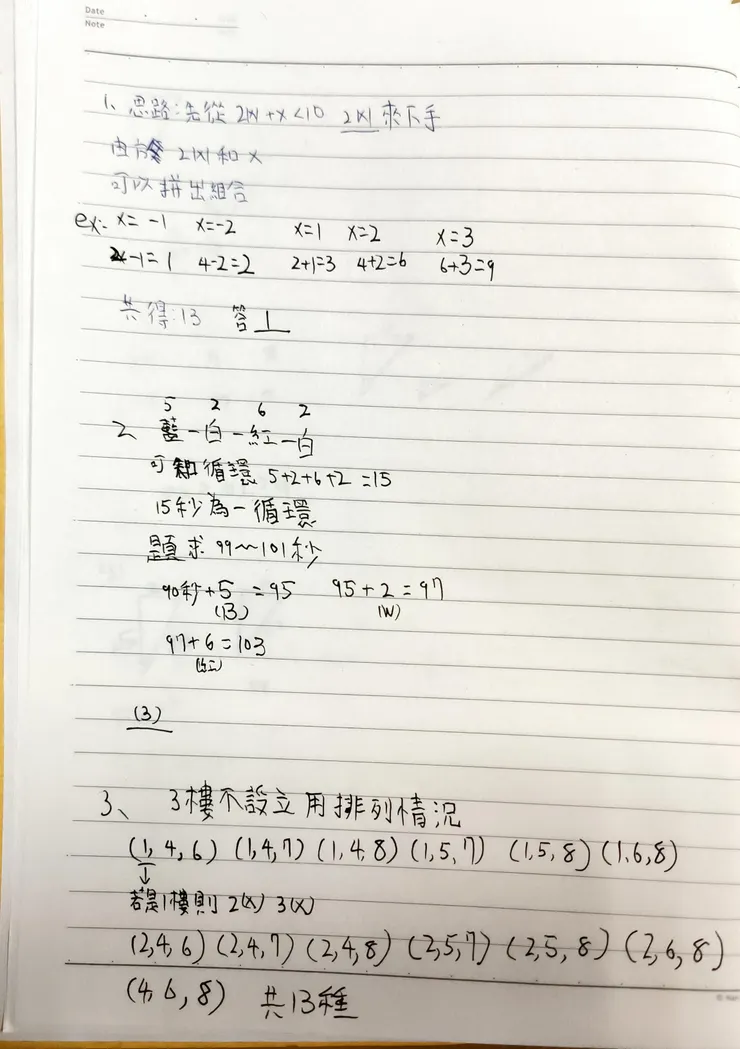 Date
Note
1、思路:先從 2|x|+x<10 2|x| 來下手
由於 2|x| 和 x
可以拼出組合
ex: x=-1 x=-2 x=1 x=2 x=3
2-1=1 4-2=2 2+1=3 4+2=6 6+3=9
共得:13 答 1
5 2 6 2
2、藍-白-紅-白
可知循環 5+2+6+2=15
15秒為一循環
題求 99~101秒
90秒+5=95 95+2=97
(B) (W)
97+6=103
(紅)
(3)
3、3樓不設立用排列情況
(1,4,6) (1,4,7) (1,4,8) (1,5,7) (1,5,8) (1,6,8)
↓
若是1樓則 2(x) 3(x)
(2,4,6) (2,4,7) (2,4,8) (2,5,7) (2,5,8) (2,6,8)
(4,6,8) 共13種